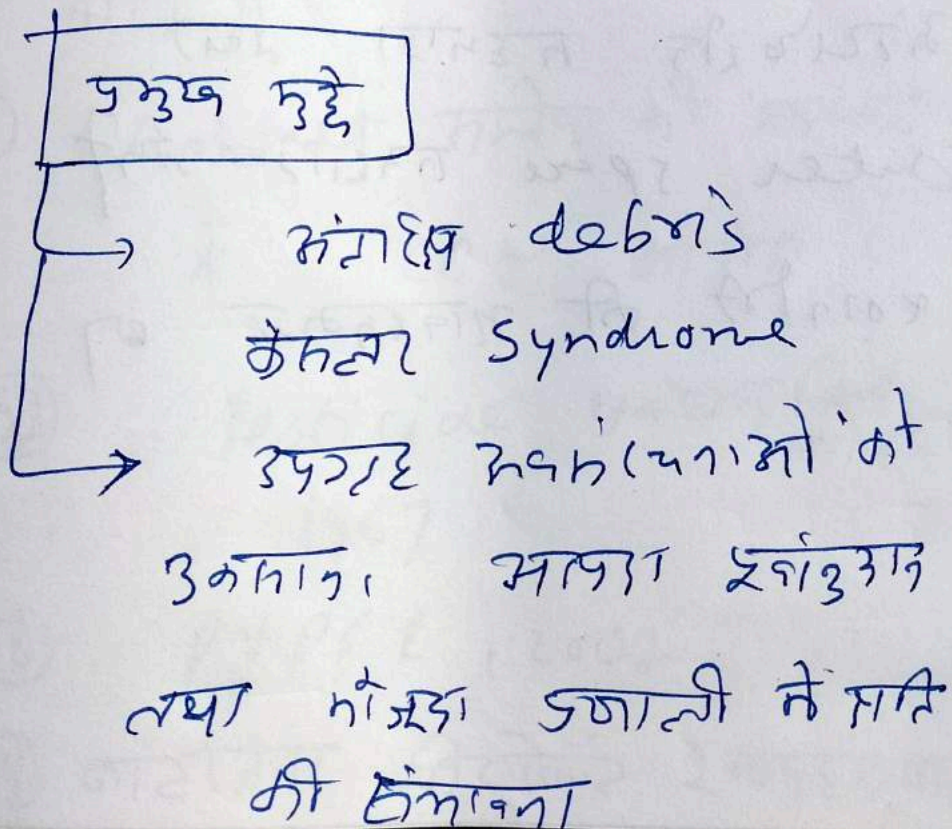 प्रमुख मुद्दे
अंतरिक्ष debris
केसलर Syndrome
उपग्रह अवसंरचनाओं को
नुकसान। आपदा पूर्वानुमान
तथा मौजूदा प्रणाली में क्षति
की संभावना